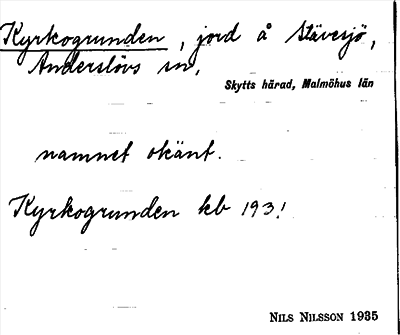 Kyrkogrunden, jord å Stävesjö,
Anderslövs sn,
Skytts härad, Malmöhus län
namnet okänt.
Kyrkogrunden kb 193!
NILS NILSSON 1935